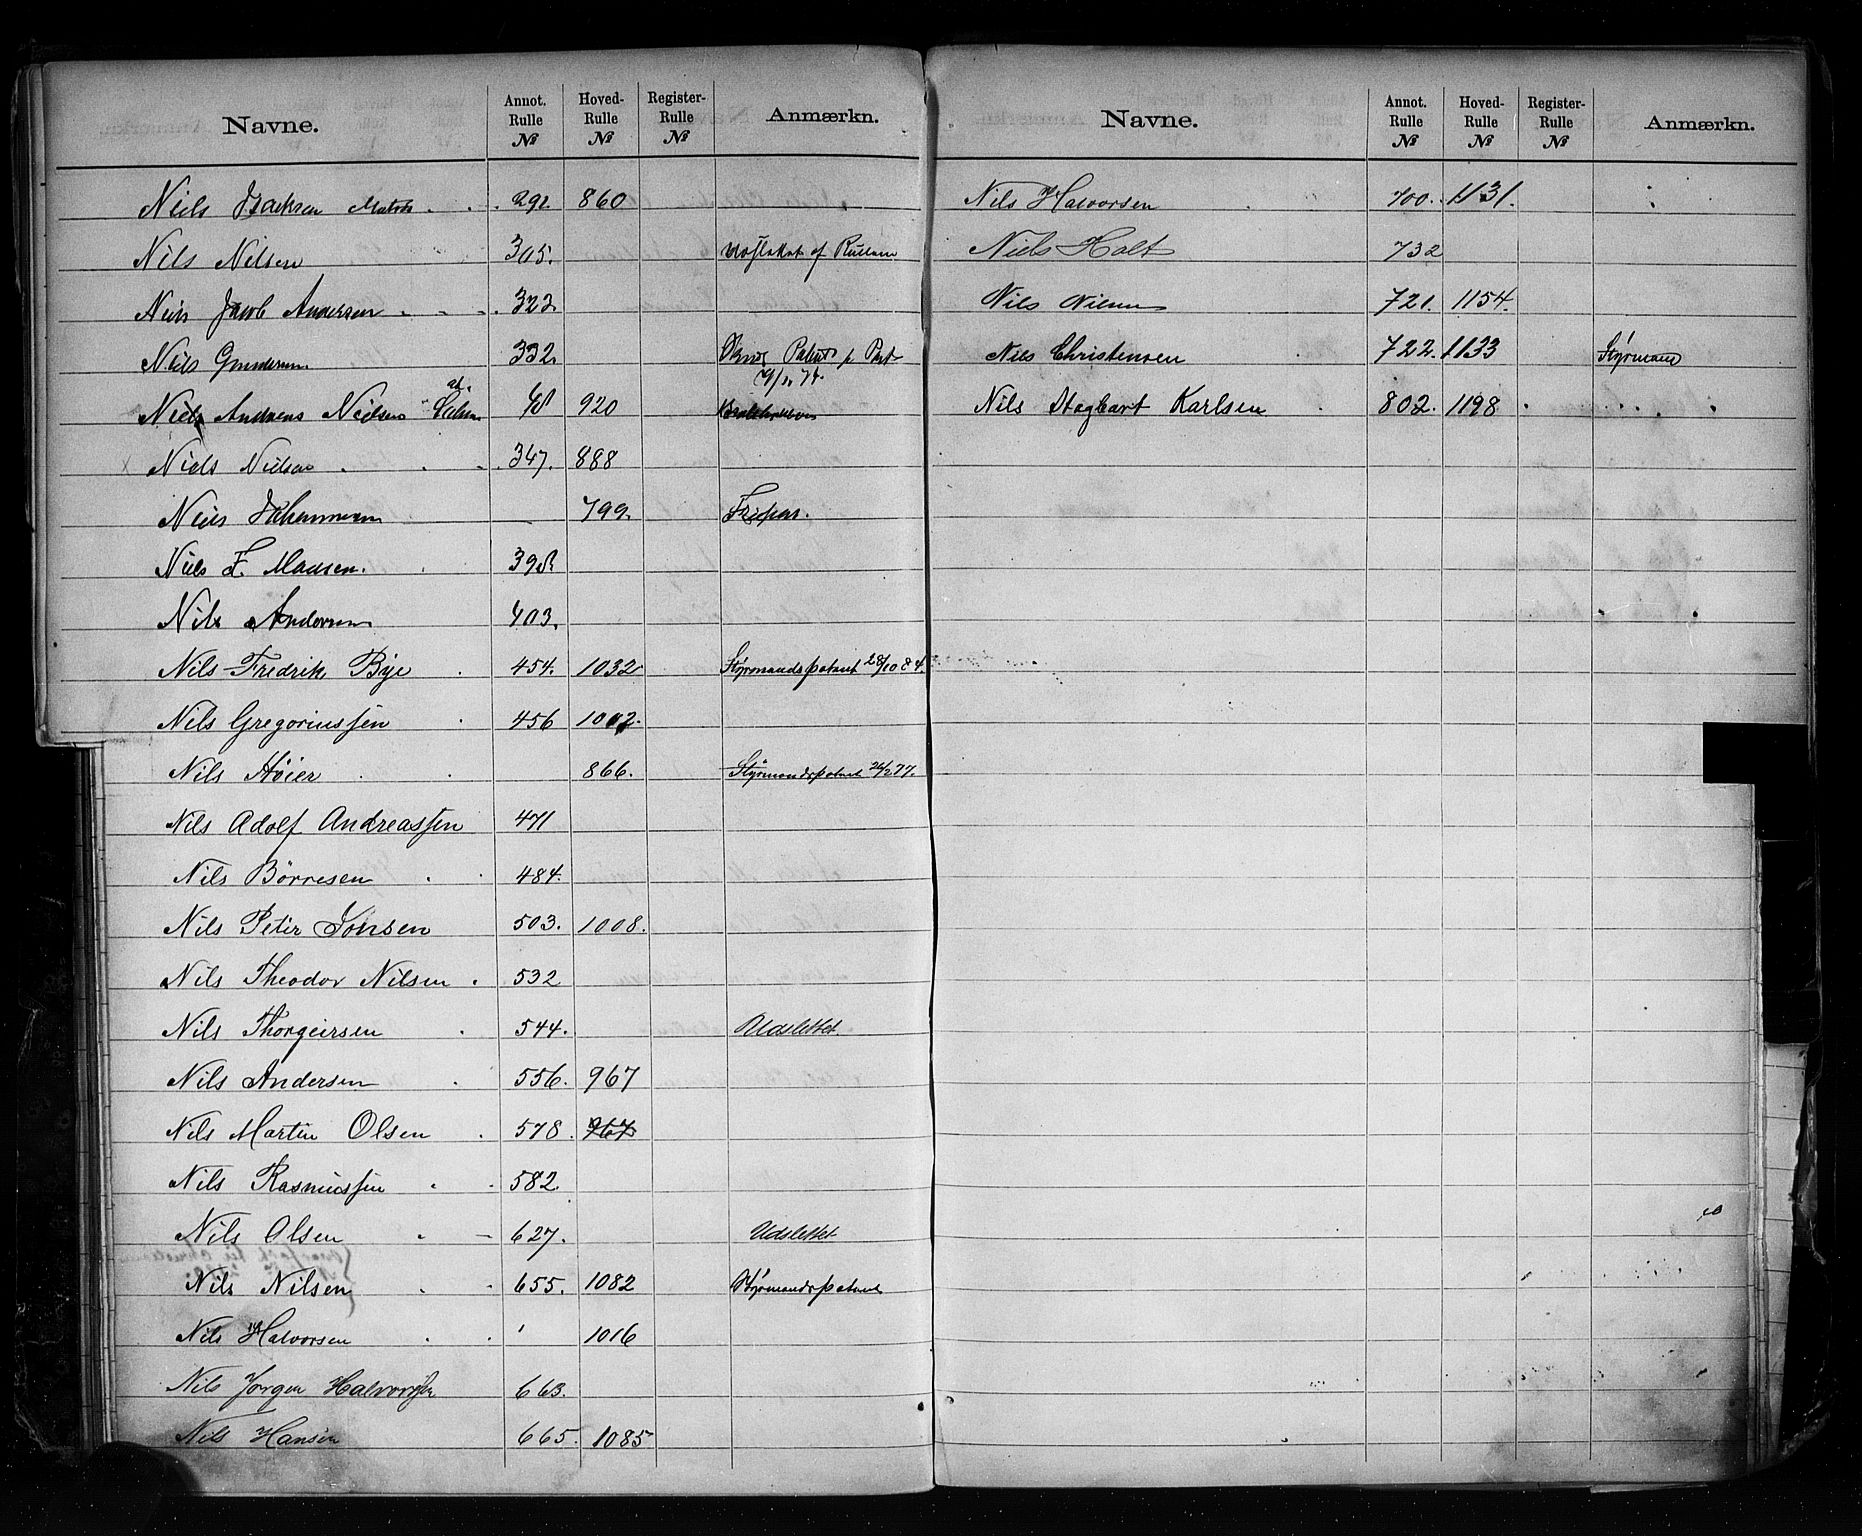 Navne. Annot. Rulle № Hoved- Rulle № Register- Rulle № Anmærkn.
Niels Isaksen Matros 291. 860
Nils Nilsen 305. Udslettet af Rullerne
Niels Jacob Andersen 323.
Niels Gundersen 332.
Niels Andreas Nielsen 48 920
x Niels Nielsen 347. 888
Niels Johannesen 799. Fripas.
Niels F. Madsen. 398
Nils Andersen 403.
Nils Fredrik Bye 454. 1032 Styrmandspatent 28/10 84.
Nils Gregoriussen 456 1002.
Nils Høier 866. Styrmandspatent 26/2 77.
Nils Adolf Andreassen 471
Nils Børresen 484.
Nils Peter Jonsen 503. 1008.
Nils Theodor Nilsen 532
Nils Thorgeirsen 544. Udslettet.
Nils Andersen 556. 967
Nils Martin Olsen 578. 967
Nils Rasmussen 582.
Nils Olsen 627. Udslettet
Nils Nilsen 655. 1082 Styrmandspatent
Nils Halvorsen 1016
Nils Jørgen Halvorsen 663.
Nils Hansen 665. 1085
Navne. Annot. Rulle № Hoved- Rulle № Register- Rulle № Anmærkn.
Nils Halvorsen 700. 1131.
Niels Holt 732
Nils Nilsen 721. 1154.
Nils Christensen 722. 1133 Styrmand
Nils Dagbart Karlsen 802. 1198